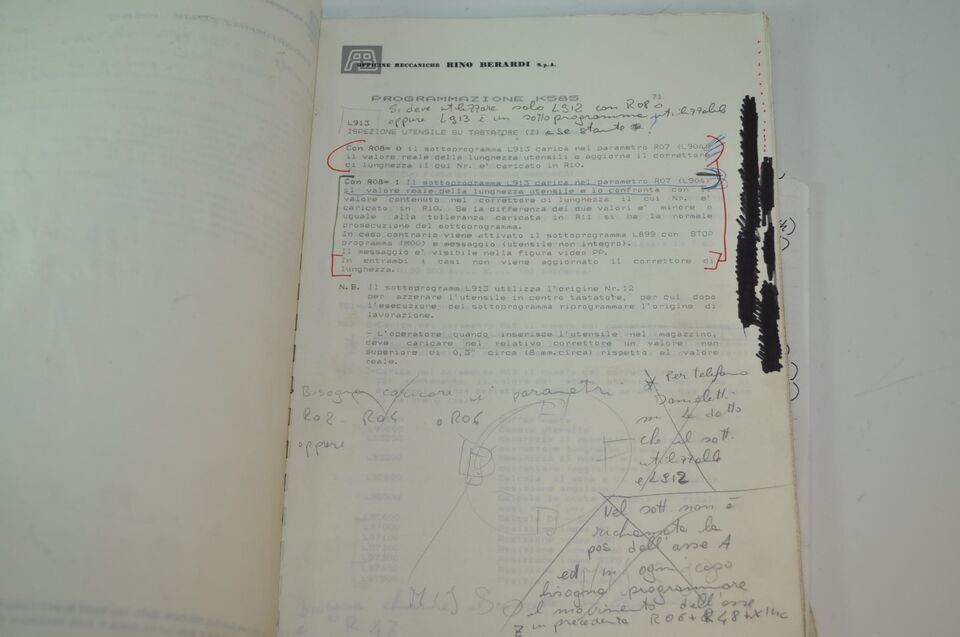 OFFICINE MECCANICHE RINO BERARDI S.p.A.
PROGRAMMAZIONE K585 71
Si deve utilizzare solo L912 con R08=0
oppure L913 è un sottoprogramma utilizzabile
L913
ISPEZIONE UTENSILE SU TASTATORE (Z) a se stante
Con R08= 0 il sottoprogramma L913 carica nel parametro R07 (L904)
il valore reale della lunghezza utensili e aggiorna il correttore
di lunghezza il cui Nr. e' caricato in R10.
Con R08= 1 Il sottoprogramma L913 carica nel parametro R07 (L904)
il valore reale della lunghezza utensile e lo confronta con il
valore contenuto nel correttore di lunghezza il cui Nr. e'
caricato in R10. Se la differenza dei due valori e' minore o
uguale alla tolleranza caricata in R11 si ha la normale
prosecuzione del sottoprogramma.
In caso contrario viene attivato il sottoprogramma L899 con STOP
programma (M00) e messaggio (utensile non integro).
Il messaggio e' visibile nella figura video PP.
In entrambi i casi non viene aggiornato il correttore di
lunghezza.
N.B. Il sottoprogramma L913 utilizza l'origine Nr.12
per azzerare l'utensile in centro tastatore, per cui dopo
l'esecuzione del sottoprogramma riprogrammare l'origine di
lavorazione.
- L'operatore quando inserisce l'utensile nel magazzino,
deve caricare nel relativo correttore un valore non
superiore di 0,3" circa (8 mm.circa) rispetto al valore
reale.
Bisogna caricare i parametri
R02 - R04 o R06
oppure
* Per telefono
Damoletti
mi è detto
che il sott.
utilizzabile
è L912
Nel sott. non è
richiamata la
pos dell'asse A
ed in ogni capo
bisogna programmare
il movimento dell'asse
Z in precedenza R06+R48+